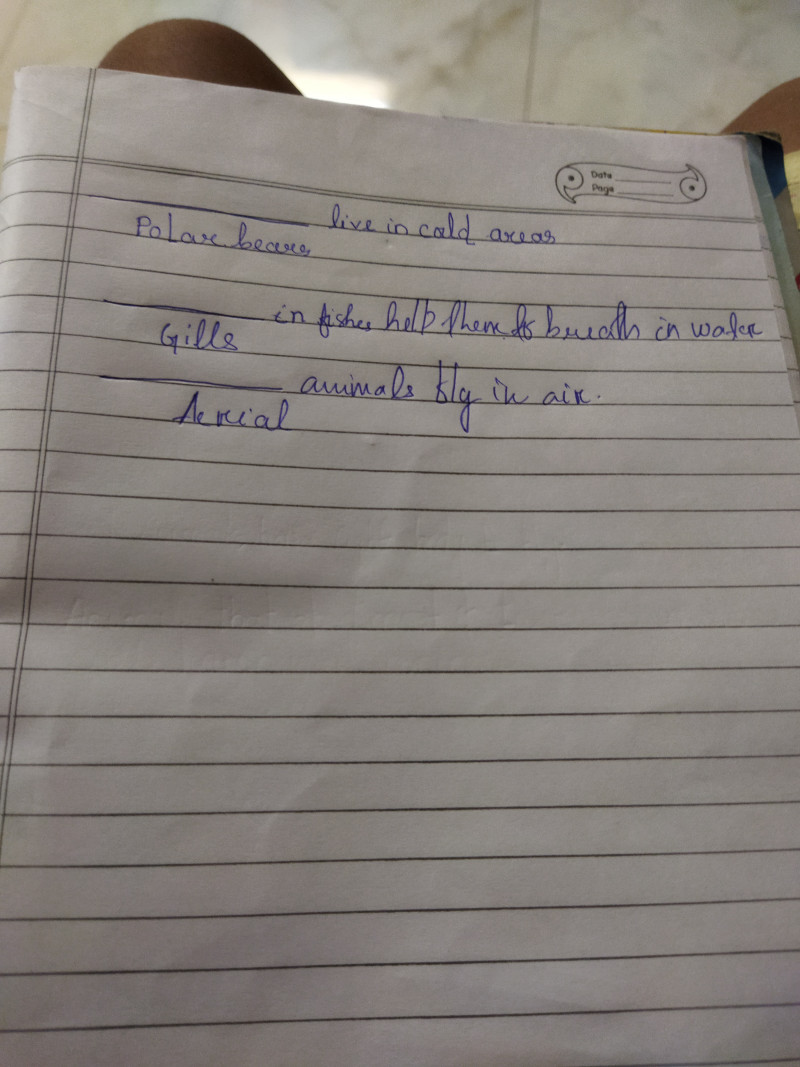 Date
Page
live in cold areas
Polar bears
in fishes help them to breath in water
Gills
animals fly in air.
Aerial